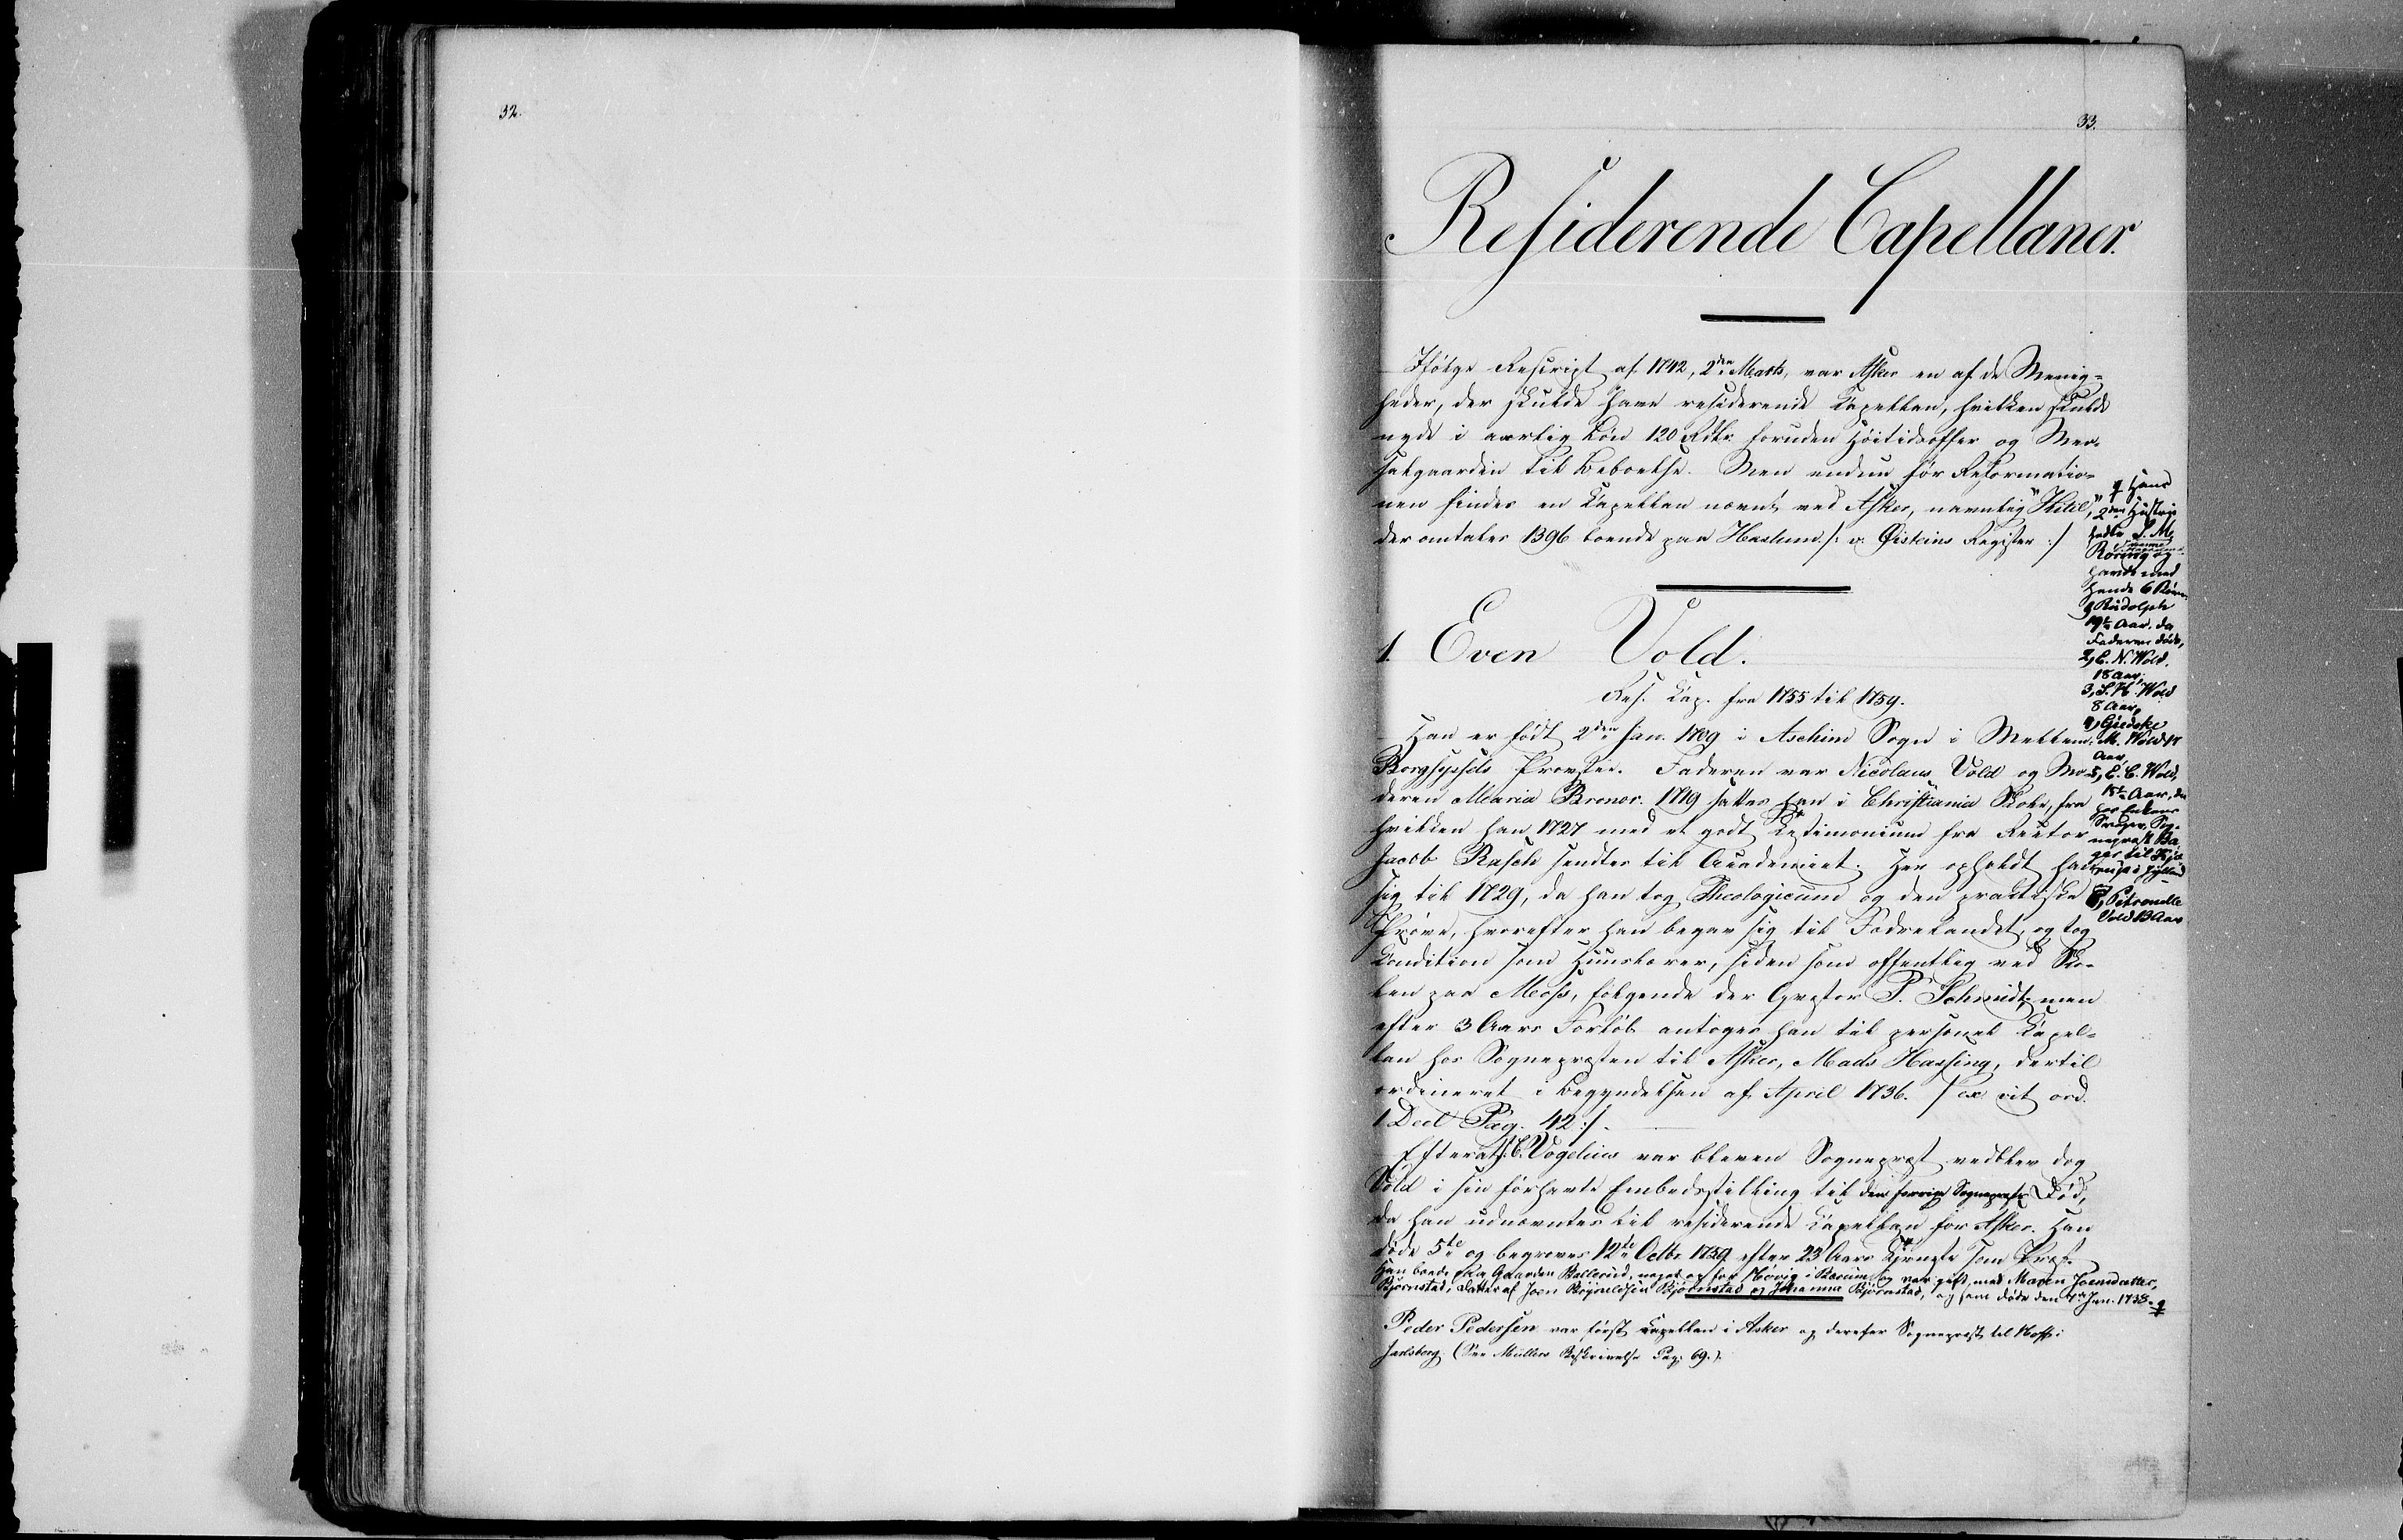 32.
33.
Residerende Capellaner.
Ifølge Rescript af 1742, 2den Marts, var Asker en af de Menig-
heder, der skulde have residerende Kapellan, hvilken skulde
nyde i aarlig Løn 120 Rdlr. foruden Høitidsoffer og Men-
salgaarden til Beboelse. Men endnu før Reformatio-
nen findes en Kapellan nævnt ved Asker, navnlig "Kitil,"
der omtales 1396 boende paa Haslum /: v. Øisteins Register :/
1. Even Vold.
Res. Kap. fra 1755 til 1759.
Han er født 2den Jan. 1709 i Aschim Sogn i Mellem-
Borgsyssels Provstie. Faderen var Nicolaus Vold og Mo-
deren Maria Bronor. 1719 sattes han i Christiania Skole, fra
hvilken han 1727 med et godt Testimonium fra Rector
Jacob Rasch sendtes til Academiet. Her opholdt han
sig til 1729, da han tog Theologicum og den practiske
Prøve, hvorefter han begav sig til Fødrelandet, og tog
Condition som Huuslærer, siden som offentlig ved Sko-
len paa Moss, følgende der Qvæstor P. Schmidt; men
efter 3 Aars Forløb antoges han til personel Kapel-
lan hos Sognepræsten til Asker, Mads Hassing, dertil
ordineret i Begyndelsen af April 1736. / ex vit ord.
1 Deel Pag. 42 :/.
Efterat J. C. Vogelius var bleven Sognepræst vedblev dog
Vold i sin førhavte Embedsstilling til den forrige Sognepræsts Død,
da han udnævntes til residerende Kapellan for Asker. Han
døde 5te og begroves 12te Octbr 1759 efter 23 Aars Tjeneste som Præst.
Han boede paa Gaarden Ballerud, noget op for Høvig i Bærum og var gift med Maren Joensdatter
Bjørnstad, Datter af Joen Bjørnstad og Johanne Bjørnstad, og som døde den 7de Jan. 1738.
Peder Pedersen var først Kapellan i Asker og derefter Sognepræst til Hoff i
Jarlsberg. (See Müllers Beskrivelse Pag. 69.)
Hans
2den Hustru
hedte S. M.
Røring og
havde med
hende 6 Børn
1, Rudolph
19½ Aar, da
Faderen døde,
2, C. N. Wold.
18 Aar,
3, S. H. Wold
8 Aar,
4, Giedske
M. Wold 17
Aar,
5, E. C. Wold,
15½ Aar, da
hos Enkens
Svoger, Sog-
nepræst
til
i Jylland
6, Petronelle
Vold 13 Aar